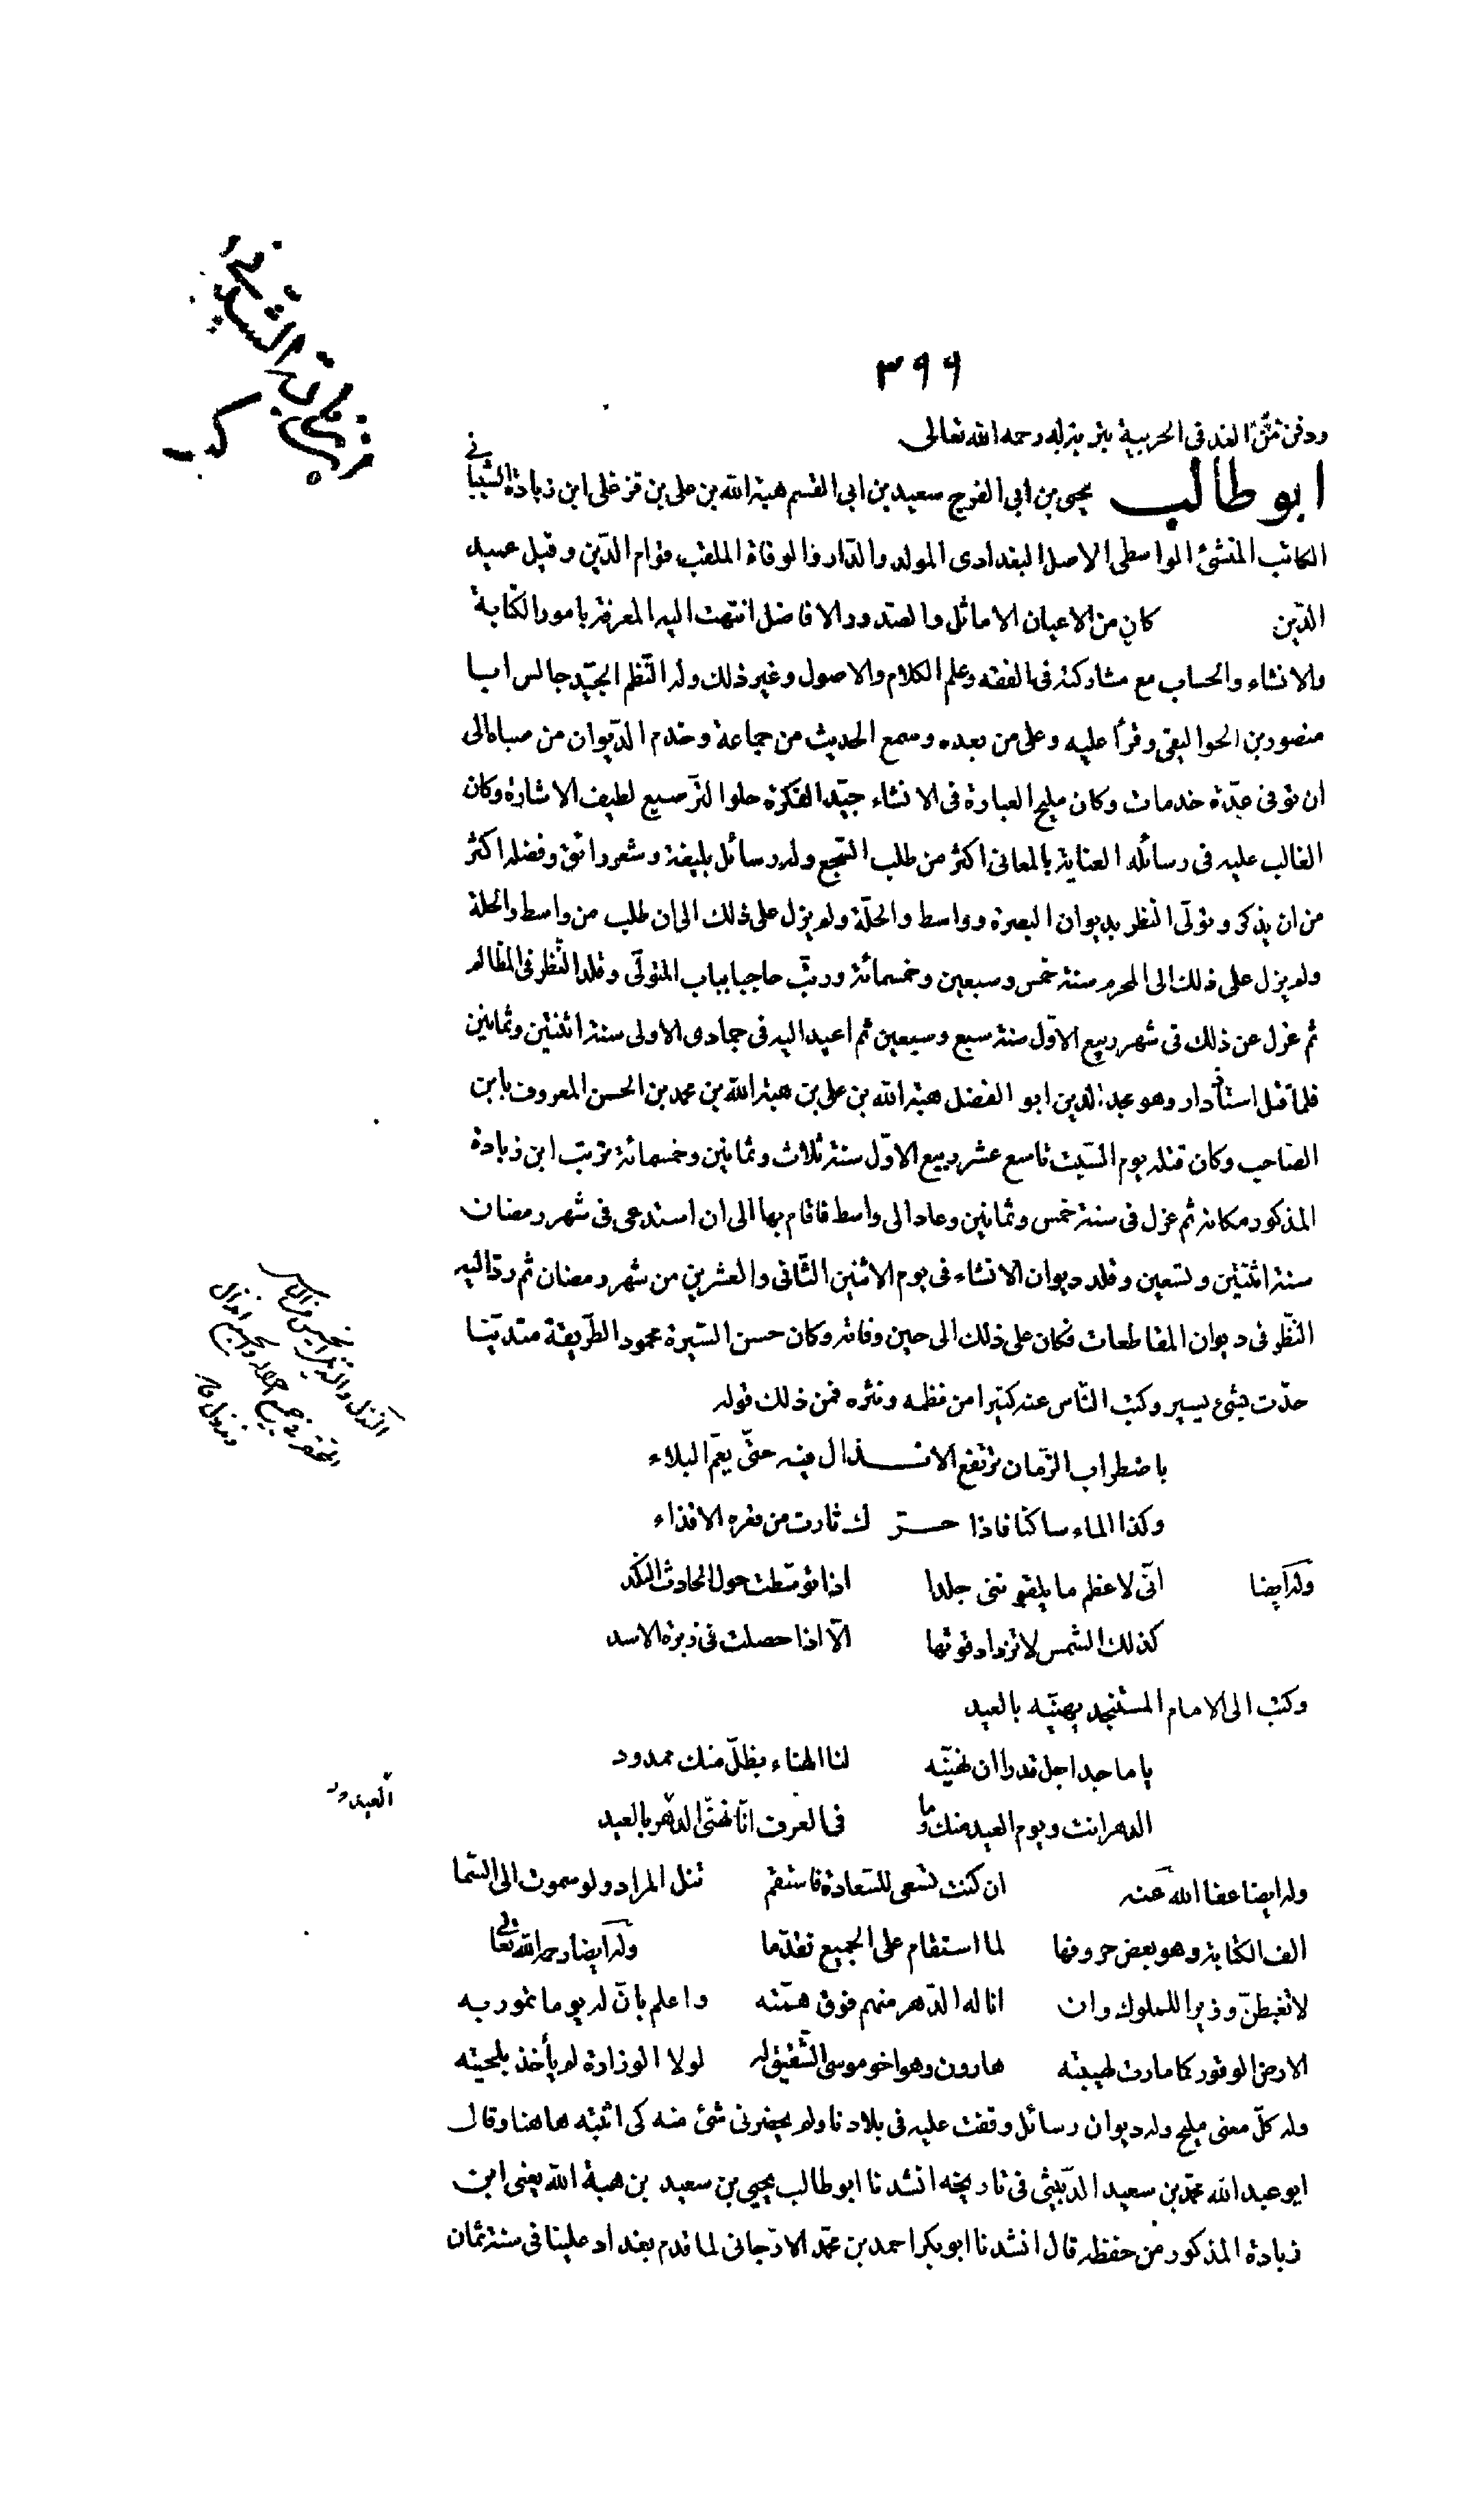 ٣٩٩
ودفن من الغد فى الحربية بتربة له رحمه الله تعالى
ابو طالب يحيى بن ابى الفرج سعيد بن ابى القسم هبة الله بن على بن قزغلى ابن زيادة الشيبانى
الكاتب المنشئ الواسطى الاصل البغدادى المولد والدار والوفاة الملقب قوام الدّين وقيل عميد
الدّين كان من الاعيان الاماثل والصدور والافاضل انتهت اليه المعرفة بامور الكتابة
والانشاء والحساب مع مشاركته فى الفقه وعلم الكلام والاصول وغير ذلك وله النّظم الجيّد جالس ابا
منصور بن الجواليقى وقرأ عليه وعلى من بعده وسمع الحديث من جماعة وخدم الدّيوان من صباه الى
ان توفى عدّة خدمات وكان مليح العبارة فى الانشاء جيّد الفكرة حلو الترصيع لطيف الاشارة وكان
الغالب عليه فى رسائله العناية بالمعانى اكثر من طلب السّجع وله رسائل بليغة وشعر رائق وفضله اكثر
من ان يذكر وتولّى النظر بديوان البصرة وواسط والحلّة ولم يزل على ذلك الى ان طلب من واسط والحلة
ولم يزل على ذلك الى المحرم سنة خمس وسبعين وخمسمائة ورتّب حاجبا بباب المتولّى وقلد النّظر فى المظالم
ثم عزل عن ذلك فى شهر ربيع الاوّل سنة سبع وسبعين ثم اعيد اليه فى جمادى الاولى سنة اثنتين وثمانين
فلمّا قتل استاذدار وهو مجد الدين ابو الفضل هبة الله بن على بن هبة الله بن محمد بن الحسن المعروف بابن
الصّاحب وكان قتله يوم السّبت تاسع عشر ربيع الاوّل سنة ثلاث وثمانين وخمسمائة ترتب ابن زيادة
المذكور مكانه ثم عزل فى سنة خمس وثمانين وعاد الى واسط فاقام بها الى ان استدعى فى شهر رمضان
سنة اثنتين وتسعين وقلد ديوان الانشاء فى يوم الاثنين الثّانى والعشرين من شهر رمضان ثم ردّ اليه
النّظر فى ديوان المقاطعات فكان على ذلك الى حين وفاته وكان حسن السّيرة محمود الطّريقة متديّنا
حدّث بشىء يسير وكتب النّاس عنه كثيرا من نظمه ونثره فمن ذلك قوله
باضطراب الزّمان ترتفع الانـذال فيه حتّى يعمّ البلاء
وكذا الماء ساكنا فاذا حـرّ ك ثارت من قعره الاقذاء
وله ايضا انّى لاعظم ما يلقوننى جلدا اذا توسّطت هول الحادث النّكد
كذلك الشمس لا تزداد قوتها الّا اذا حصلت فى زبرة الاسد
وكتب الى الامام المستنجد يهنيّه بالعيد
يا ماجدا جل قدرا ان نهنيّه لنا الهناء بظلّ منك ممدود
الدهر انت ويوم العيد منك وما فى العرف انّا نهنّى الدّهر بالعيد
العيدود
وله ايضا عفا الله عنه ان كنت تسعى للسّعادة فاستقم تنل المراد ولو سموت الى السّما
الف الكتابة وهو بعض حروفها لما استقام على الجميع تقدّما وله ايضا رحمه الله تعالى
لا تغبطنّ وزيرا للملوك وان اناله الدّهر منهم فوق همّته واعلم بانّ له يوما تمور به
الارض الوقور كما مارت لهيبته هارون وهو اخو موسى الشّقيق له لولا الوزارة لم يأخذ بلحيته
وله كلّ معنى مليح وله ديوان رسائل وقفت عليه فى بلادنا ولم يحضرنى شئ منه كى اثبته هاهنا وقال
ابو عبد الله محمّد بن سعيد الدّبيثى فى تاريخه انشدنا ابو طالب يحيى بن سعيد بن هبة الله يعنى ابن
زيادة المذكور من حفظه قال انشدنا ابو بكر احمد بن محمّد الارّجانى لما قدم بغداد علينا فى سنة ثمان